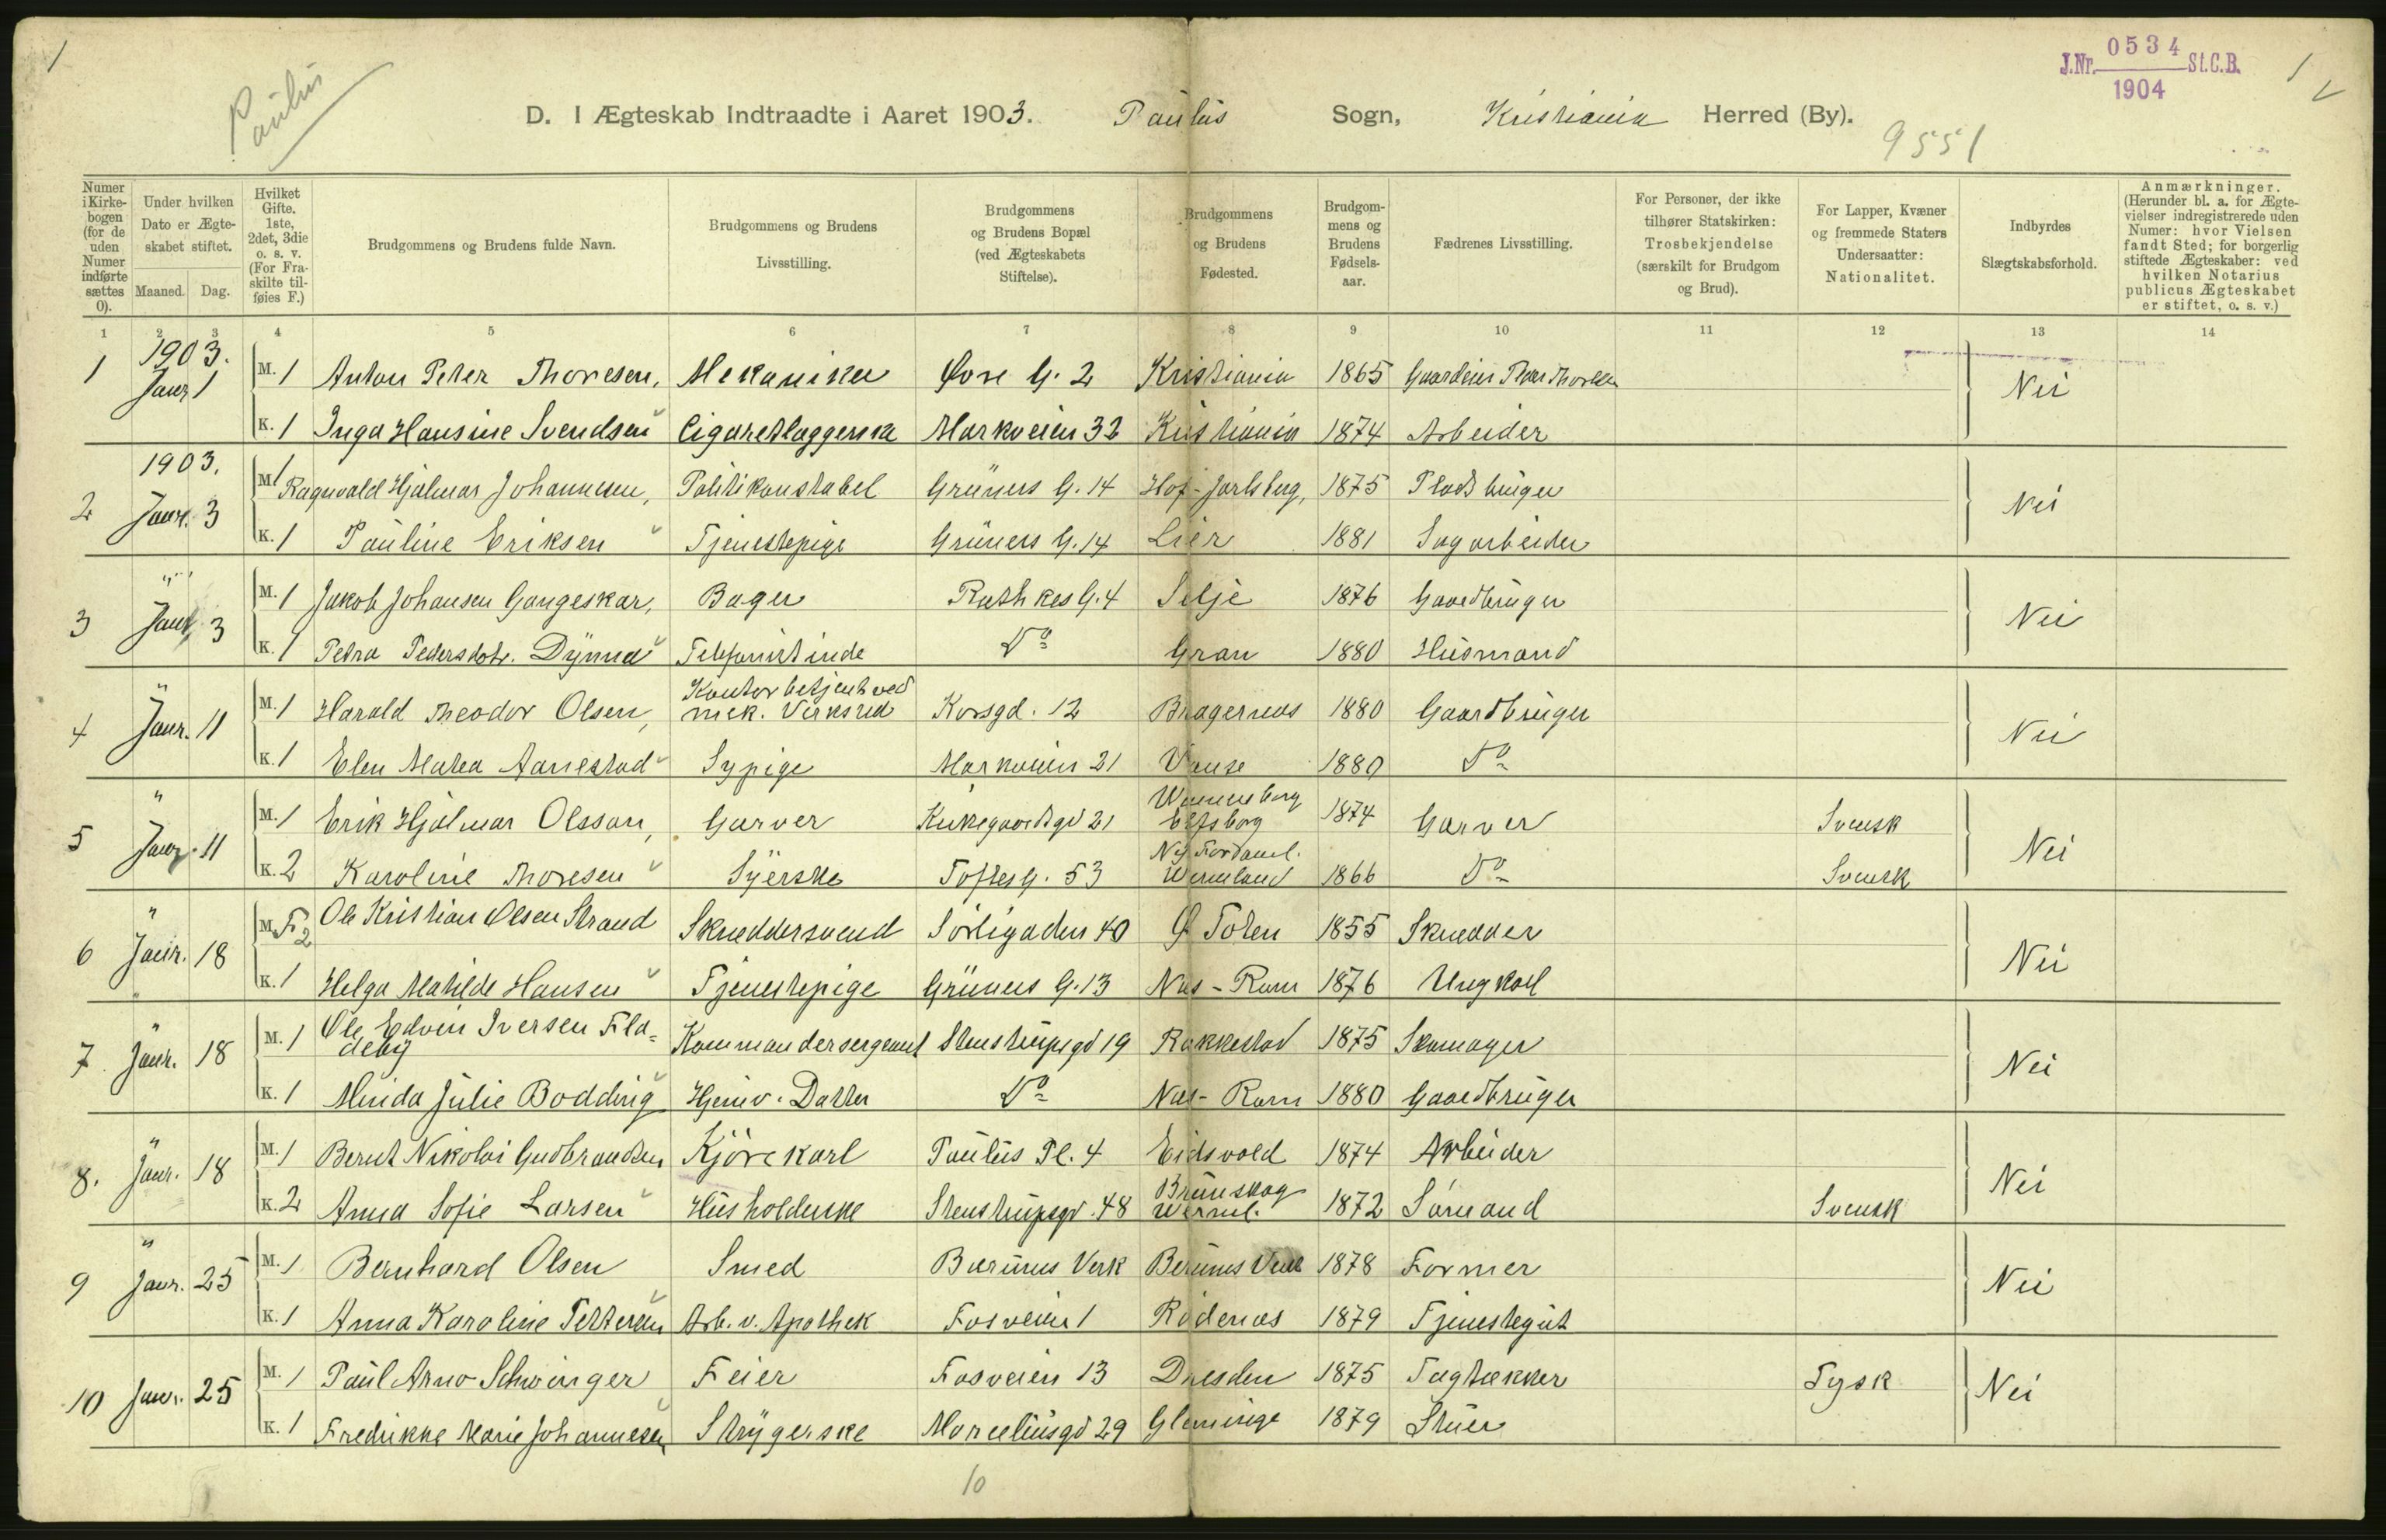 1
Paulus
J.Nr. 0534 St.C.B.
1904
1
D. I Ægteskab Indtraadte i Aaret 1903. Paulus Sogn, Kristiania Herred (By).
9551
Numer i Kirkebogen (for de uden Numer indførte sættes 0).
Under hvilken Dato er Ægteskabet stiftet.
Maaned. Dag.
Hvilket Gifte. 1ste, 2det, 3die o. s. v. (For Fraskilte tilføies F.)
Brudgommens og Brudens fulde Navn.
Brudgommens og Brudens Livsstilling.
Brudgommens og Brudens Bopæl (ved Ægteskabets Stiftelse).
Brudgommens og Brudens Fødested.
Brudgommens og Brudens Fødselsaar.
Fædrenes Livsstilling.
For Personer, der ikke tilhører Statskirken: Trosbekjendelse (særskilt for Brudgom og Brud).
For Lapper, Kvæner og fremmede Staters Undersaatter: Nationalitet.
Indbyrdes Slægtskabsforhold.
Anmærkninger. (Herunder bl. a. for Ægtevielser indregistrerede uden Numer: hvor Vielsen fandt Sted; for borgerlig stiftede Ægteskaber: ved hvilken Notarius publicus Ægteskabet er stiftet, o. s. v.)
1 2 3 4 5 6 7 8 9 10 11 12 13 14
1903.
1 Janr 1 M. 1 Anton Peter Thoresen, Mekaniker Øvre G. 2 Kristiania 1865 Nei
K. 1 Inga Hansine Svendsen Cigaretlaggerske Markveien 32 Kristiania 1874 Arbeider
1903.
2 Janr. 3 M. 1 Ragnvald Hjalmar Johannesen, Politikonstabel Grüners G. 14 Hof-Jarlsberg, 1875 Pladsbruger Nei
K. 1 Pauline Eriksen Tjenestepige Grüners G. 14 Lier 1881 Sagarbeider
"
3 Janr. 3 M. 1 Jakob Johansen Gangeskar, Bager Rathkes G. 4 Selje 1876 Gaardbruger Nei
K. 1 Petra Pedersdotr. Dynna Telefonistinde Do Gran 1880 Husmand
"
4 Janr. 11 M. 1 Harald Theodor Olsen, Kontorbetjent ved mek. Verksted Korsgd. 12 Bragernes 1880 Gaardbruger Nei
K. 1 Elen Matea Aanestad Sypige Markveien 21 Vanse 1880 Do
"
5 Janr. 11 M. 1 Erik Hjalmar Olsson, Garver Kirkegaardsgd 21 Wenersborg Elfsborg 1874 Garver Svensk Nei
K. 2 Karoline Thoresen Syerske Toftes G. 53 Wermland 1866 Do Svensk
"
6 Janr. 18 M. F. 2 Ole Kristian Olsen Strand Skræddersvend Sörligaden 40 Ø Toten 1855 Skrædder Nei
K. 1 Helga Matilde Hansen Tjenestepige Grüners G. 13 Nes-Rom 1876 Ungkarl
"
7 Janr. 18 M. 1 Ole Edvin Iversen Fladeby Kommandersergeant Stenstrupsgd 19 Rakkestad 1875 Skomager Nei
K. 1 Minda Julie Bodding Hjemv. Datter Do Nes-Rom 1880 Gaardbruger
"
8. Janr. 18 M. 1 Bernt Nikolai Gudbrandsen Kjörekarl Paulus Pl. 4 Eidsvold 1874 Arbeider Nei
K. 2 Anna Sofie Larsen Husholderske Stenstrupsgd. 48 Brunskog Werml. 1872 Sömand Svensk
"
9 Janr. 25 M. 1 Bernhard Olsen Smed Bærums Verk Bærums Verk 1878 Former Nei
K. 1 Anna Karoline Pettersen Arb. v. Apothek Fosveien 1 Rödenes 1879 Tjenestegut
10 Janr. 25 M. 1 Paul Arno Schwinger Feier Fosveien 13 Dresden 1875 Tagtækker Tysk Nei
K. 1 Fredrikke Marie Johannesen Strygerske Marceliusgd 29 Glemminge 1879 Stuer
10